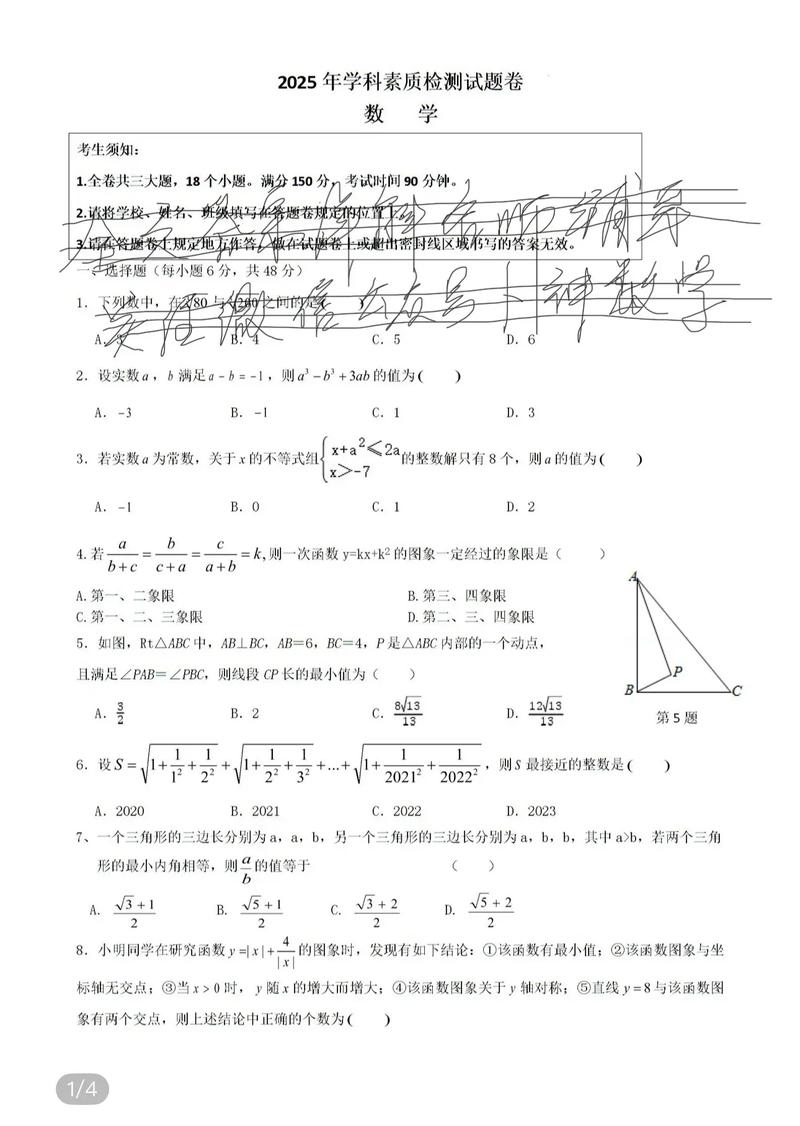 2025 年学科素质检测试题卷
数 学
考生须知:
1.全卷共三大题，18 个小题。满分 150 分，考试时间 90 分钟。
2.请将学校、姓名、班级填写在答题卷规定的位置上。
3.请在答题卷上规定地方作答，做在试题卷上或超出密封线区域书写的答案无效。
一、选择题（每小题 6 分，共 48 分）
1．下列数中，在∛80 与∛200 之间的是( )
A．3 B．4 C．5 D．6
2．设实数 a，b 满足 a－b＝－1，则 a³－b³＋3ab 的值为( )
A．－3 B．－1 C．1 D．3
3．若实数 a 为常数，关于 x 的不等式组{x+a²≤2a x>-7 的整数解只有 8 个，则 a 的值为( )
A．－1 B．0 C．1 D．2
4.若 a/(b+c) = b/(c+a) = c/(a+b) = k,则一次函数 y=kx+k² 的图象一定经过的象限是（ ）
A.第一、二象限 B.第三、四象限
C.第一、二、三象限 D.第二、三、四象限
5．如图，Rt△ABC 中，AB⊥BC，AB=6，BC=4，P 是△ABC 内部的一个动点，
且满足∠PAB=∠PBC，则线段 CP 长的最小值为（ ）
A．3/2 B．2 C．8√13/13 D．12√13/13
A
B
P
C
第 5 题
6．设 S = √(1+1/1²+1/2²) + √(1+1/2²+1/3²) +...+ √(1+1/2021²+1/2022²)，则 S 最接近的整数是( )
A．2020 B．2021 C．2022 D．2023
7、一个三角形的三边长分别为 a，a，b，另一个三角形的三边长分别为 a，b，b，其中 a>b，若两个三角
形的最小内角相等，则 a/b 的值等于 （ ）
A. (√3+1)/2 B. (√5+1)/2 C. (√3+2)/2 D. (√5+2)/2
8．小明同学在研究函数 y=|x|+4/|x| 的图象时，发现有如下结论：①该函数有最小值；②该函数图象与坐
标轴无交点；③当 x>0 时，y 随 x 的增大而增大；④该函数图象关于 y 轴对称；⑤直线 y=8 与该函数图
象有两个交点，则上述结论中正确的个数为( )
1/4